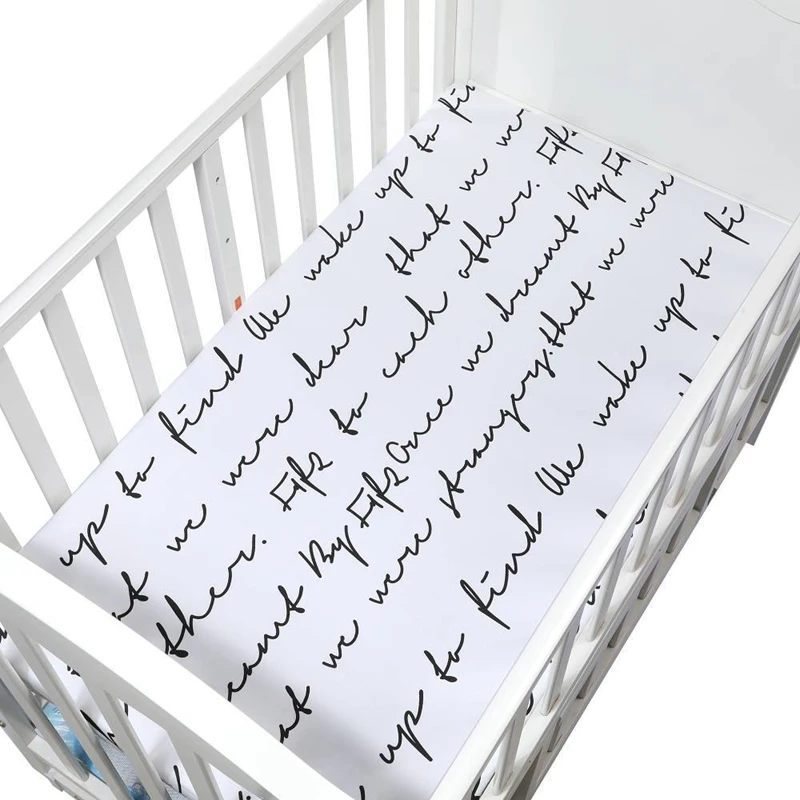 up to find We wake up to fi
at we were dear that we wer
ther. to each other.
eamt By Once we dreamt By
at we were strangers. that we were
up to find We wake up to fi